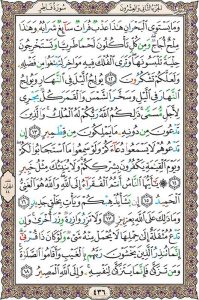 الجزء الثاني والعشرون
سورة فاطر
وَمَا يَسْتَوِي الْبَحْرَانِ هَٰذَا عَذْبٌ فُرَاتٌ سَائِغٌ شَرَابُهُ وَهَٰذَا
مِلْحٌ أُجَاجٌ وَمِن كُلٍّ تَأْكُلُونَ لَحْمًا طَرِيًّا وَتَسْتَخْرِجُونَ
حِلْيَةً تَلْبَسُونَهَا وَتَرَى الْفُلْكَ فِيهِ مَوَاخِرَ لِتَبْتَغُوا مِن فَضْلِهِ
وَلَعَلَّكُمْ تَشْكُرُونَ ١٢ يُولِجُ اللَّيْلَ فِي النَّهَارِ وَيُولِجُ
النَّهَارَ فِي اللَّيْلِ وَسَخَّرَ الشَّمْسَ وَالْقَمَرَ كُلٌّ يَجْرِي
لِأَجَلٍ مُّسَمًّى ذَٰلِكُمُ اللَّهُ رَبُّكُمْ لَهُ الْمُلْكُ وَالَّذِينَ
تَدْعُونَ مِن دُونِهِ مَا يَمْلِكُونَ مِن قِطْمِيرٍ ١٣ إِن
تَدْعُوهُمْ لَا يَسْمَعُوا دُعَاءَكُمْ وَلَوْ سَمِعُوا مَا اسْتَجَابُوا لَكُمْ
وَيَوْمَ الْقِيَامَةِ يَكْفُرُونَ بِشِرْكِكُمْ وَلَا يُنَبِّئُكَ مِثْلُ خَبِيرٍ
١٤ يَا أَيُّهَا النَّاسُ أَنتُمُ الْفُقَرَاءُ إِلَى اللَّهِ وَاللَّهُ هُوَ الْغَنِيُّ
الْحَمِيدُ ١٥ إِن يَشَأْ يُذْهِبْكُمْ وَيَأْتِ بِخَلْقٍ جَدِيدٍ
١٦ وَمَا ذَٰلِكَ عَلَى اللَّهِ بِعَزِيزٍ ١٧ وَلَا تَزِرُ وَازِرَةٌ وِزْرَ أُخْرَىٰ وَإِن
تَدْعُ مُثْقَلَةٌ إِلَىٰ حِمْلِهَا لَا يُحْمَلْ مِنْهُ شَيْءٌ وَلَوْ كَانَ ذَا قُرْبَىٰ
إِنَّمَا تُنذِرُ الَّذِينَ يَخْشَوْنَ رَبَّهُم بِالْغَيْبِ وَأَقَامُوا الصَّلَاةَ
وَمَن تَزَكَّىٰ فَإِنَّمَا يَتَزَكَّىٰ لِنَفْسِهِ وَإِلَى اللَّهِ الْمَصِيرُ ١٨
٤٣٦